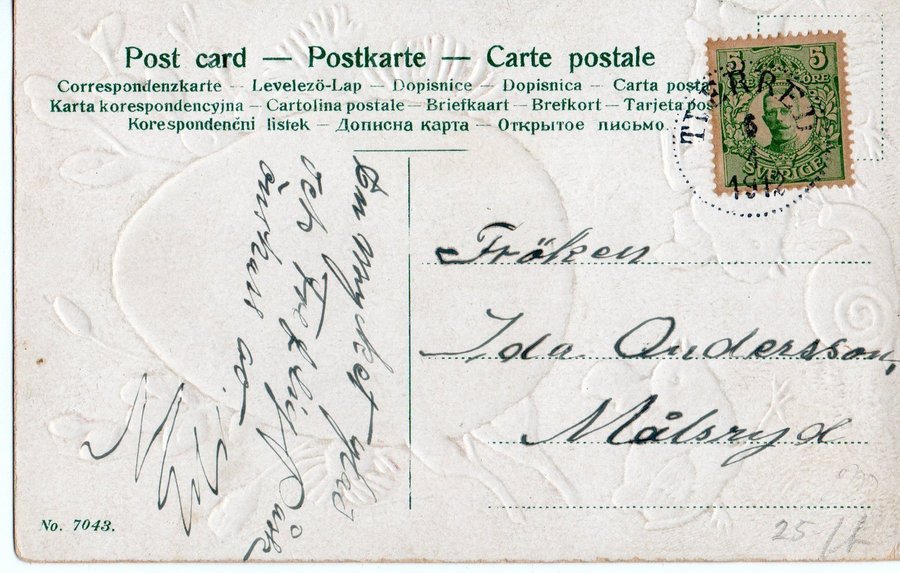 Post card — Postkarte — Carte postale
Correspondenzkarte — Levelező-Lap — Dopisnice — Dopisnica — Carta posta
Karta korespondencyjna — Cartolina postale — Briefkaart — Brefkort — Tarjeta pos
Korespondenční listek — Дописна карта — Открытое письмо
5 5
ÖRE
SVERIGE
6
1912
En Mycket glad
och Treflig Påsk
önskas av
Fröken
Ida Andersson,
Målsryd
No. 7043.
25